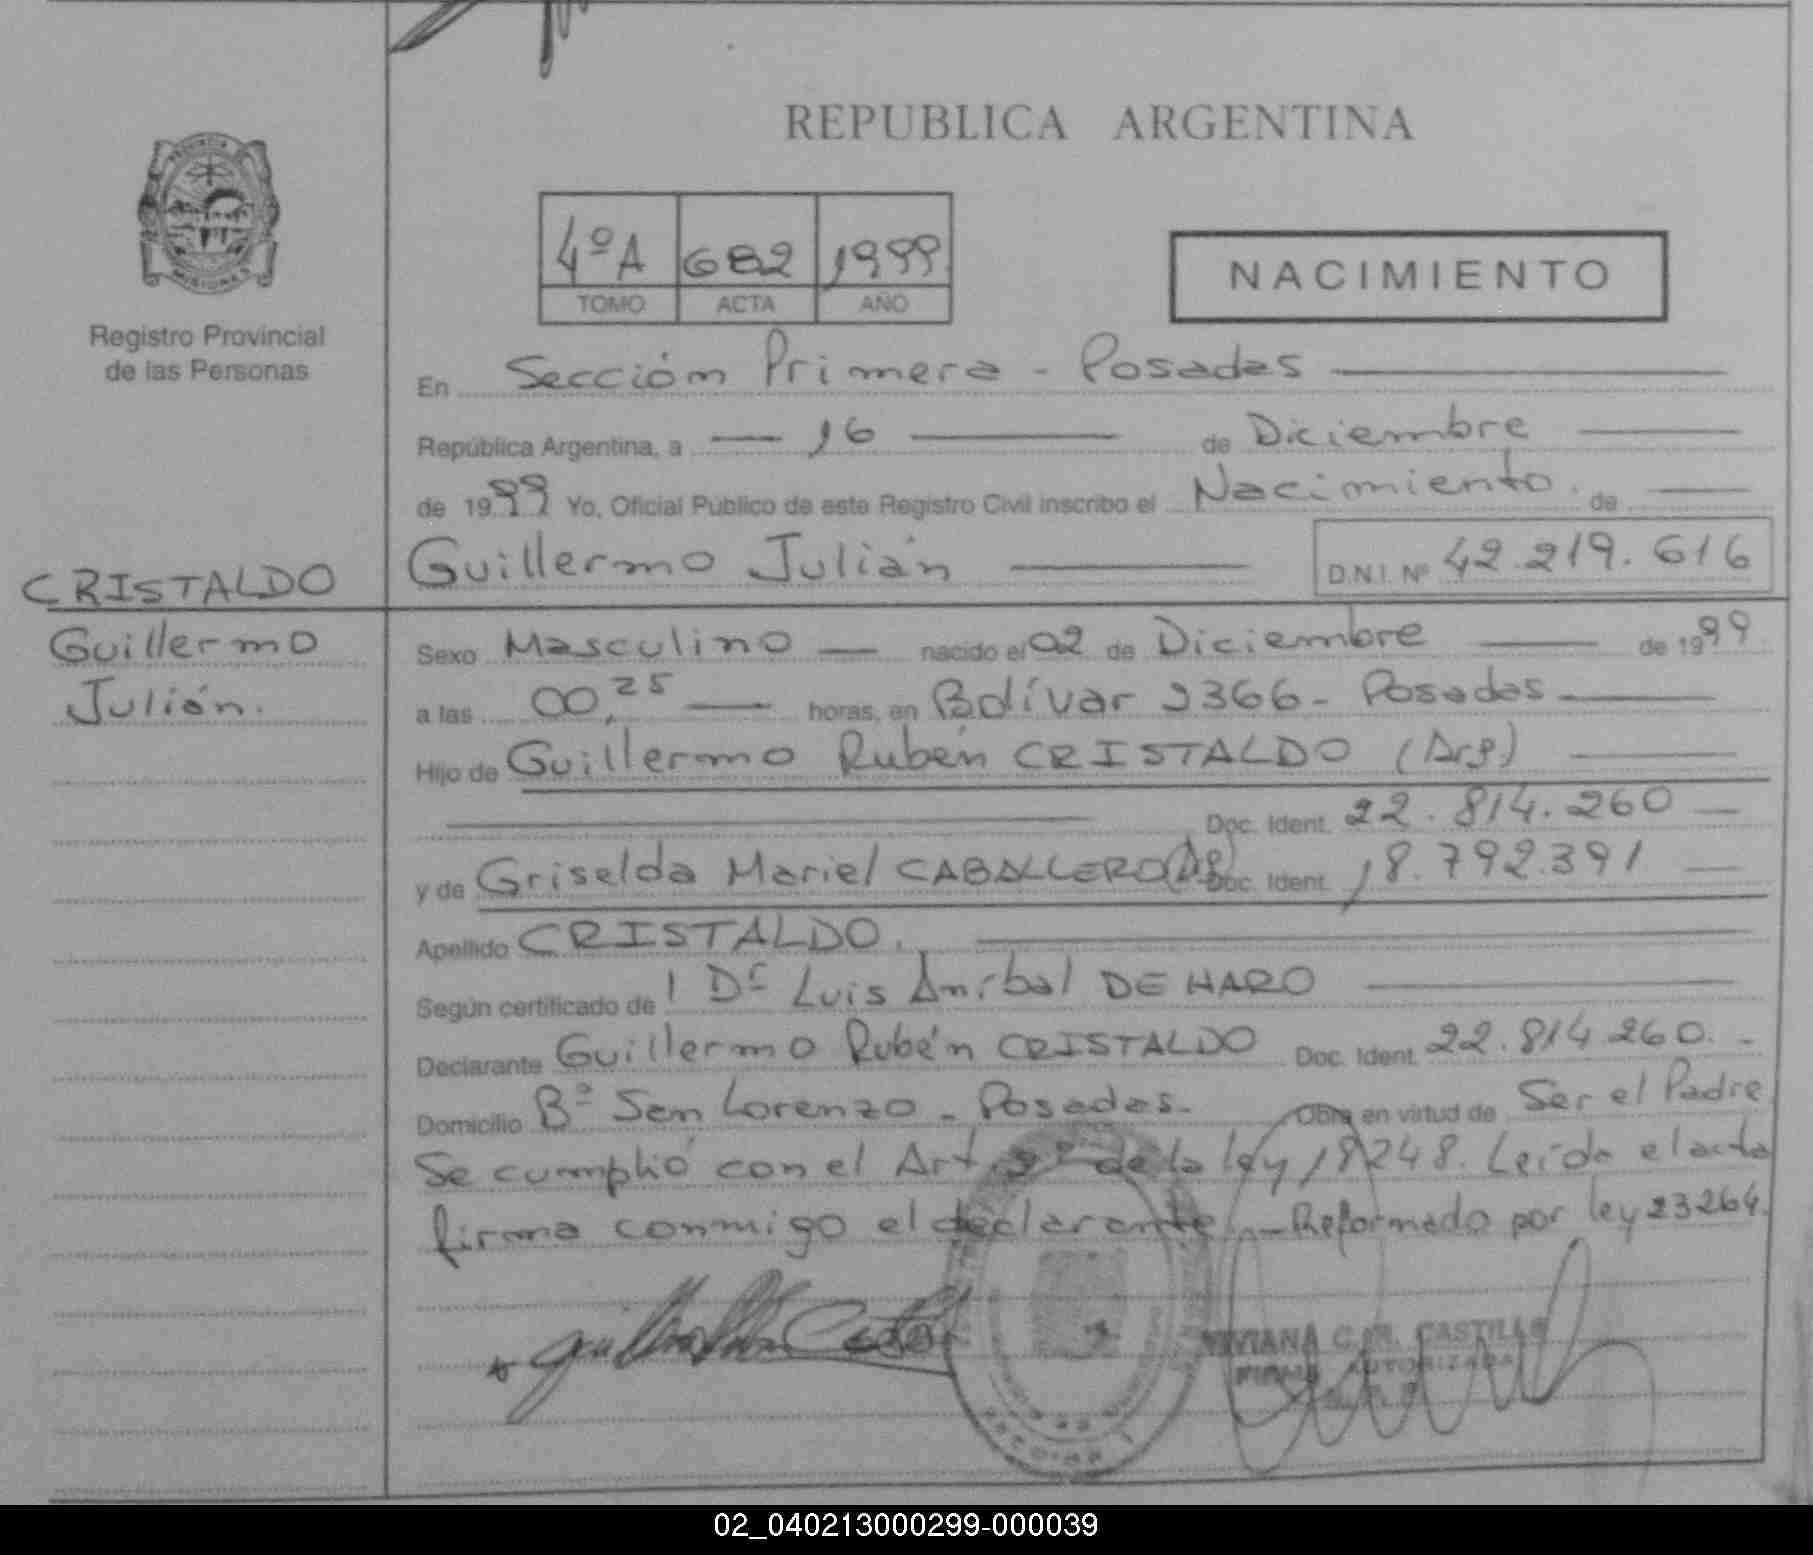 REPUBLICA ARGENTINA
PROVINCIA DE
MISIONES
Registro Provincial
de las Personas
4º A 682 1999
TOMO ACTA AÑO
NACIMIENTO
En Sección Primera - Posadas
República Argentina, a 16 de Diciembre
de 1999 Yo, Oficial Público de este Registro Civil inscribo el Nacimiento. de
CRISTALDO
Guillermo
Julián.
Guillermo Julián D.N.I. Nº 42.219.616
Sexo Masculino nacido el 02 de Diciembre de 1999
a las 00,25 horas, en Bolívar 2366 - Posadas
Hijo de Guillermo Rubén CRISTALDO (Arg)
Doc. Ident. 22.814.260
y de Griselda Mariel CABALLERO (Arg) Doc. Ident. 18.792.391
Apellido CRISTALDO.
Según certificado de l Dr Luis Aníbal DE HARO
Declarante Guillermo Rubén CRISTALDO Doc. Ident. 22.814.260. -
Domicilio Bº San Lorenzo - Posadas. - Obra en virtud de Ser el Padre
Se cumplió con el Art. de la ley 18248. Leída el acta
firma conmigo el declarante. - Reformado por ley 23264.
VIVIANA C. R. CASTILLO
FIRMA AUTORIZADA
02_040213000299-000039